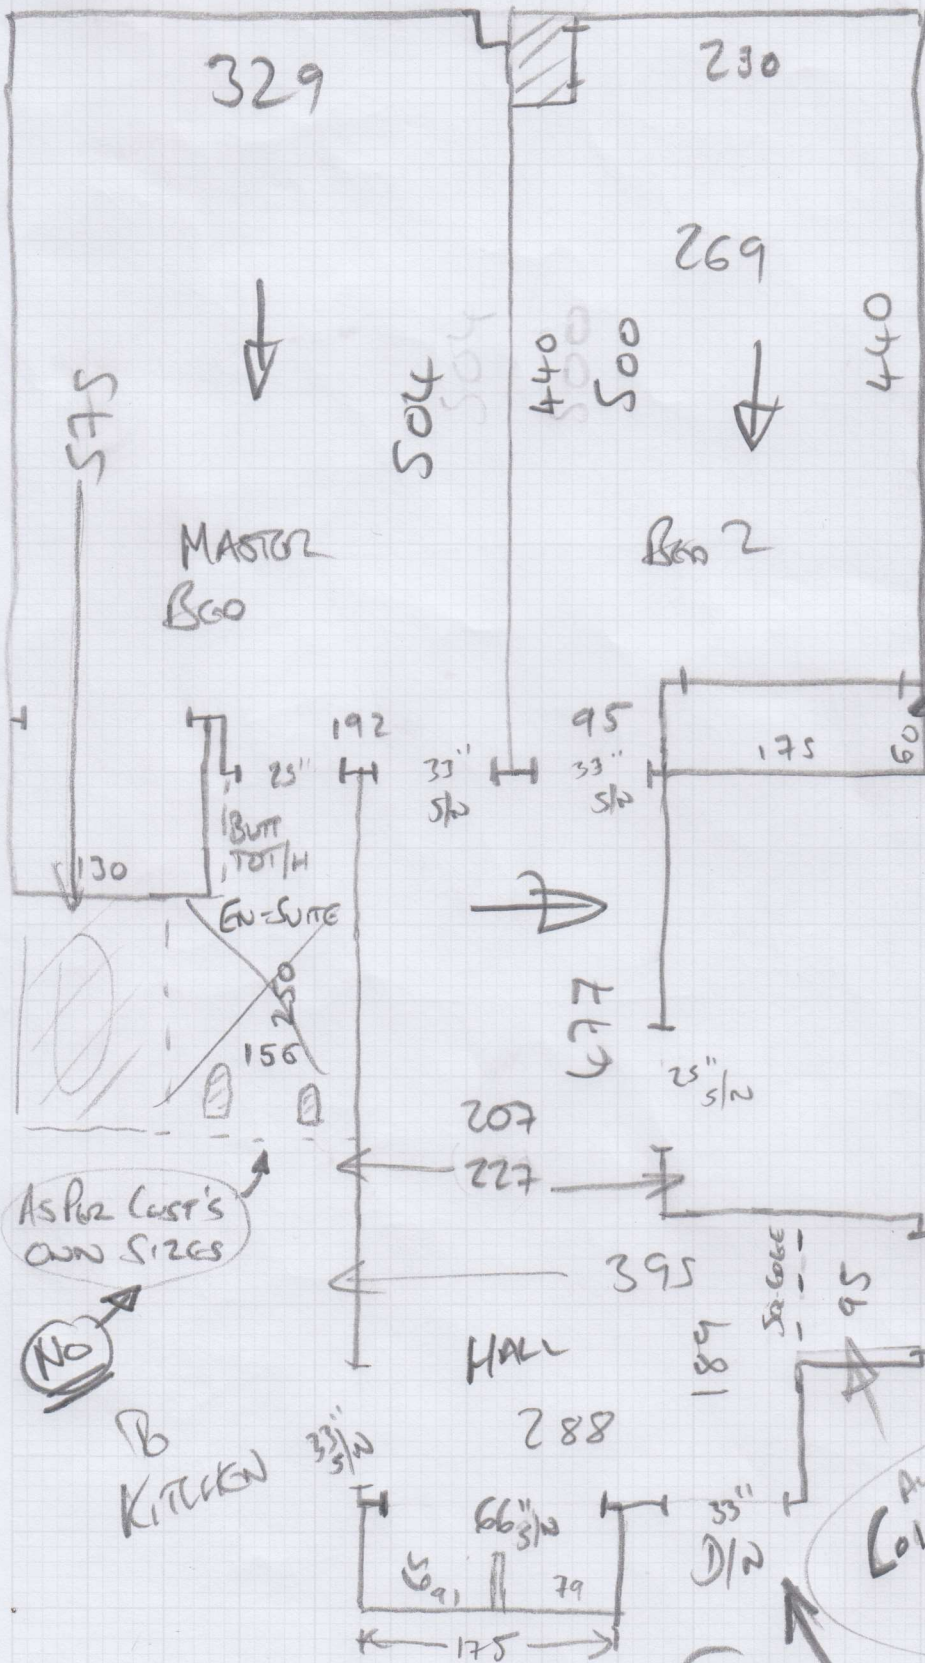 329
230
269
575
504
504
440
500
500
440
MASTER
BED
BED 2
192
95
25"
33"
S/N
33"
S/N
175
60
BUTT
TOT/H
130
EN-SUITE
250
156
477
25"
S/N
207
227
AS PER CUST'S
OWN SIZES
NO
395
189
SQ-EDGE
95
HALL
288
TO
KITCHEN
33"
S/N
66"
S/N
33"
D/N
91
79
175